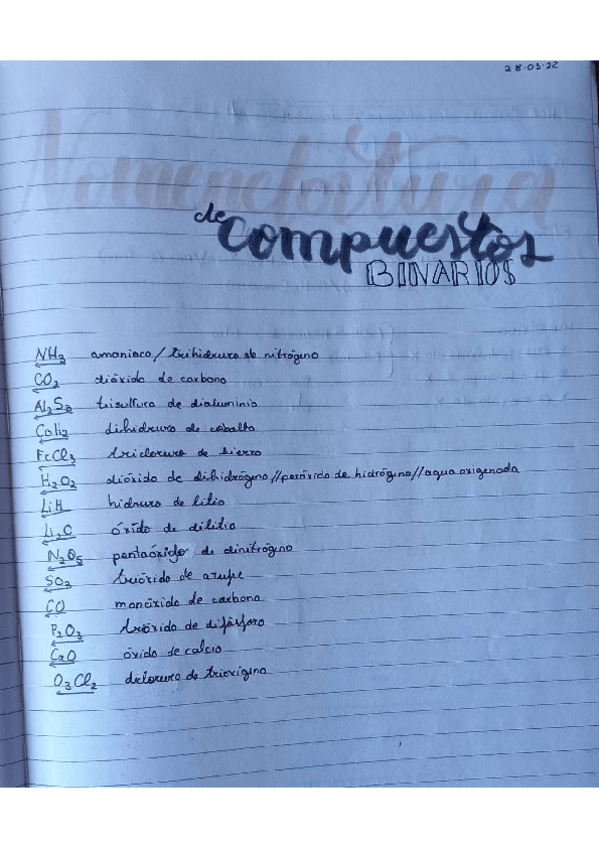 28-03-22
Nomenclatura
de
compuestos
BINARIOS
NH₃ amoniaco/trihidruro de nitrógeno
CO₂ dióxido de carbono
Al₂S₃ trisulfuro de dialuminio
CoH₂ dihidruro de cobalto
FeCl₃ tricloruro de hierro
H₂O₂ dióxido de dihidrógeno//peróxido de hidrógeno//agua oxigenada
LiH hidruro de litio
Li₂O óxido de dilitio
N₂O₅ pentaóxido de dinitrógeno
SO₃ trióxido de azufe
CO monóxido de carbono
P₂O₃ trióxido de difósforo
CaO óxido de calcio
O₃Cl₂ dicloruro de trioxígeno